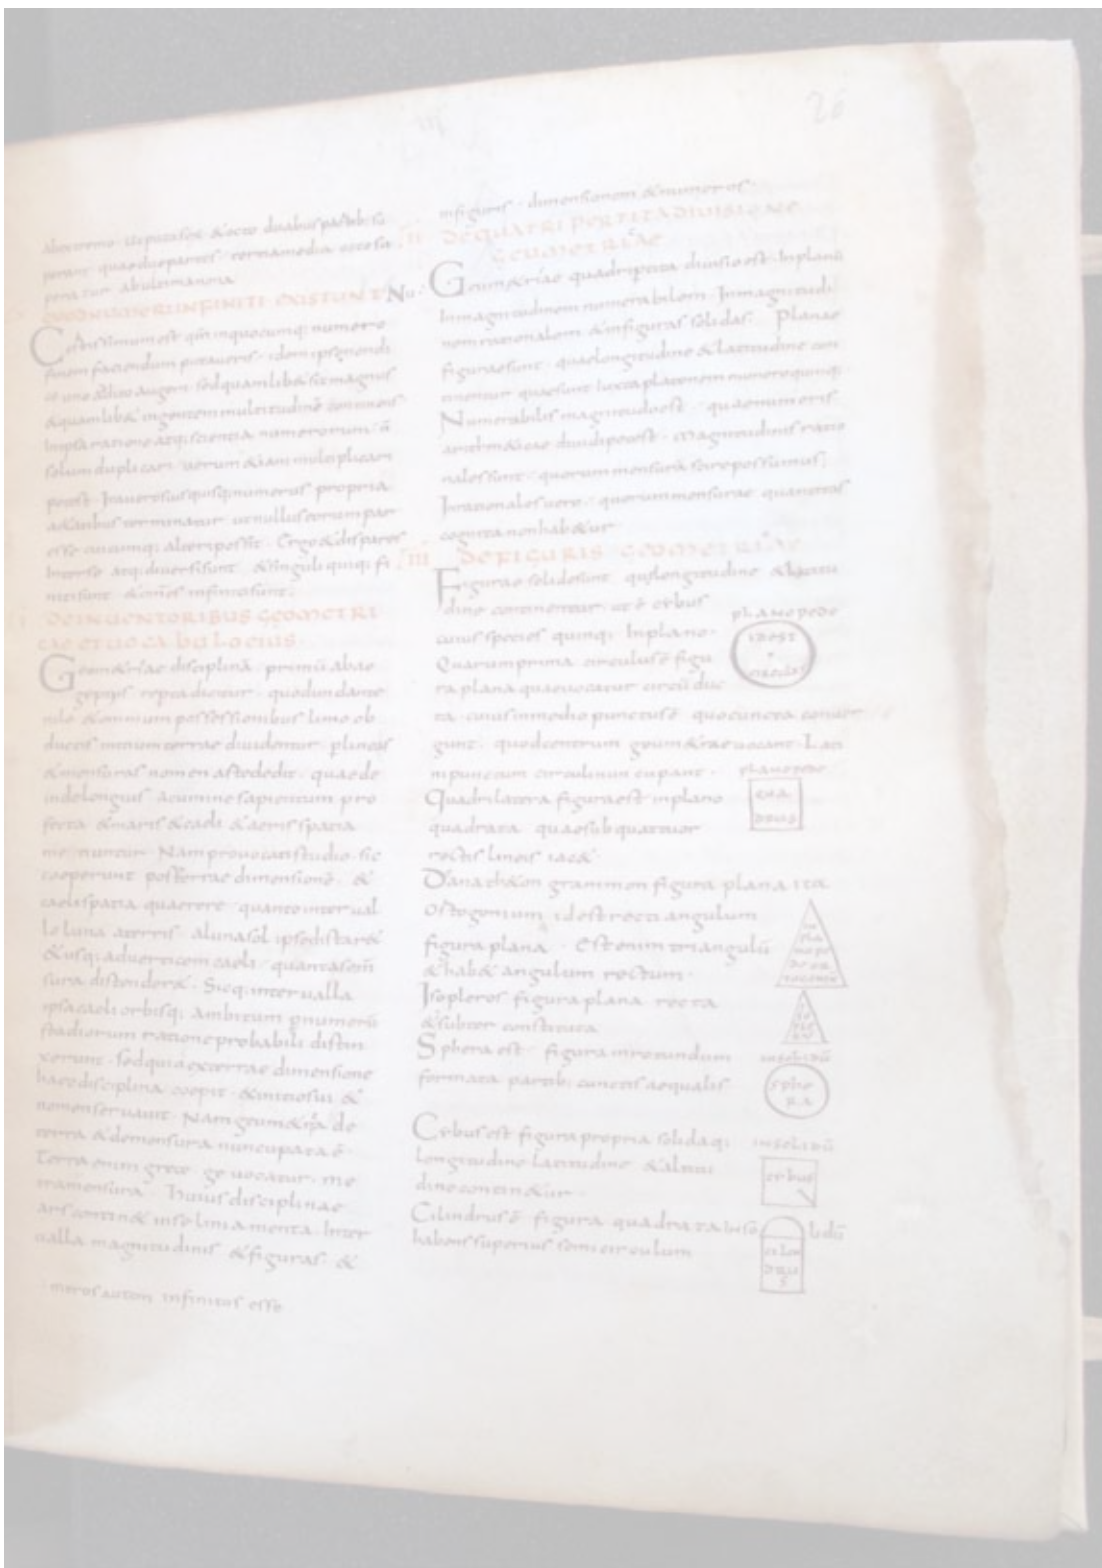 26
ab extremo. ut puta sex & octo duabus partib; su
perant quae duae partes tertia media octo su
peratur ab ultima nona
QUOD NUMERI INFINITI EXISTUNT Nu
Certissimum est qm̄ in quocunq; numero
finem faciendum putaueris. idem ipse non di
co uno addito augeri. sed quamlib& sit magnus
& quamlib& ingentem multitudinē continens
In ipsa ratione atq; scientia numerorum. n̄
solum duplicari uerum & iam multiplicari
potest. Ita uero suis quisq; numerus propria
&atibus terminatur ut nullus eorum par
esse cuicumq; alteri possit. Ergo & dispares
Inter se atq; diuersi sunt & singuli quiq; fi
niti sunt & om̄s infiniti sunt;
DE INUENTORIBUS GEOMETRI
CAE ET UOCABULO EIUS
Geom&riae disciplina primū ab ae
gyptiis reperta dicitur. quod inundante
nilo & omnium possessionibus limo ob
ductis initium terrae diuidentur p lineas
& mensuras nomen arte dedit. quae de
inde longius acumine sapientum pro
fecta & maris & caeli & aeris spatia
me tiuntur Nam prouocati studio. sic
coeperunt post terrae dimensionē &
caeli spatia quaerere quanto interual
lo luna a terris. a luna sol ipse distar&
& usq; ad uerticem caeli quanta se m̄
sura distender&. Sicq; interualla
ipsa caeli orbisq; ambitum p numerū
stadiorum ratione probabili distin
xerunt. sed quia ex terrae dimensione
haec disciplina coepit. & initio sui &
nomen seruauit. Nam geum&ria de
terra & de mensura nuncupata ē.
Terra enim grece ge uocatur. me
tra mensura. Huius disciplinae
ars contin& in se liniamenta. Inter
ualla magnitudinis & figuras. &
meros autem infinitos esse
in figuris. dimensionem & numeros.
II DE QUATRIPERTITA DIUISIONE
GEUMETRICAE
Geum&riae quadripertita diuisio est. In planū
In magnitudinem numerabilem. In magnitudi
nem rationalem & in figuras solidas. Planae
figurae sunt. quae longitudine & latitudine con
tinentur quae sunt iuxta platonem numero quinq;
Numerabilis magnitudo est. quae numeris
arithm&icae diuidi potest. Magnitudinis ratio
nales sunt. quorum mensurā scire possumus;
Irrationales uero. quorum mensurae quantitas
cognita non hab&ur
III DE FIGURIS GEOMETRICAE
Figurae solidae sunt quae longitudine & latitu
dine continentur ut ē cybus
cuius species quinq; In plano.
Quarum prima circulus ē figu
ra plana quae uocatur circū duc
ta cuius in medio punctus ē quo cuncta conuer
gunt. quod centrum geum&rae uocant. Lati
ni punctum circuli nuncupant.
Quadrilatera figura est in plano
quadrata quae sub quattuor
rectis lineis iac&.
Dianath&on grammon figura plana ita
Ortogonium id est recti angulum
figura plana. Est enim triangulū
& hab& angulum rectum.
Isopleros figura plana recta
& subter constituta
Sphera est figura in rotundum
formata partib; cunctis aequalis
Cybus est figura propria solida q;
longitudine latitudine & altitu
dine contin&ur.
Cilindrus ē figura quadrata
habens superius semicirculum
PLANO PEDE
IDEST
CIRCULUS
PLANO PEDE
QUA
DRUS
IN
PLA
NO PE
DE OR
TOGONIU
IN SOLIDŪ
SPHE
RA
IN SOLIDŪ
cybus
In so lidū
CILIN
DRU
S